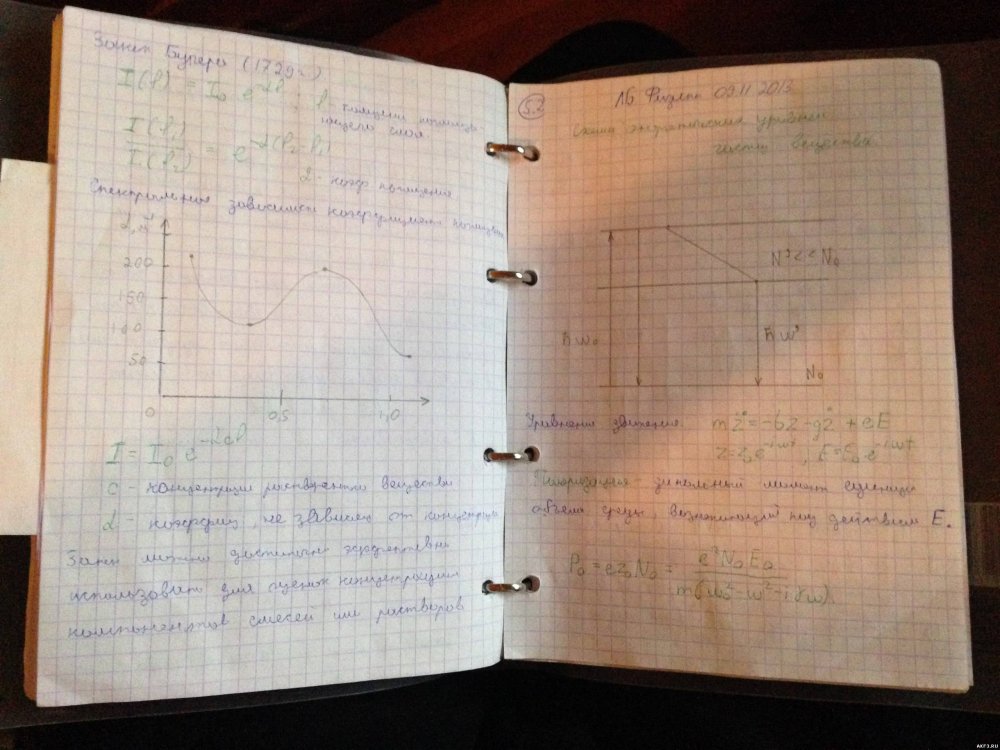 Закон Бугера (1729г.)
I(l) = I₀ e^(-αl) ; l - толщина поглоща-
ющего слоя
I(l₁)
I(l₂) = e^(α(l₂-l₁))
α - коэф поглощения
Спектральная зависимость коэффициента поглощения
200
150
100
50
0
0,5
1,0
I = I₀ e^(-αcl)
c - концентрация растворенного вещества
α - коэффиц, не зависящ от концентрации
Закон можно достаточно эффективно
использовать для оценок концентрации
компонентов смесей или растворов
5.2
Физика 09.11 2013
Схема энергетических уровней
частиц вещества.
N' << N₀
ħ ω₀
ħ ω'
N₀
Уравнения движения: mz̈ = -bz - gż + eE
z = z₀ e^(-iωt) , E = E₀ e^(-iωt)
Поляризация - дипольный момент единицы
объема среды, возникающий под действием E.
P₀ = ez₀N₀ = e²N₀E₀
m(ω₀² - ω² - iγω)
AKF3.RU